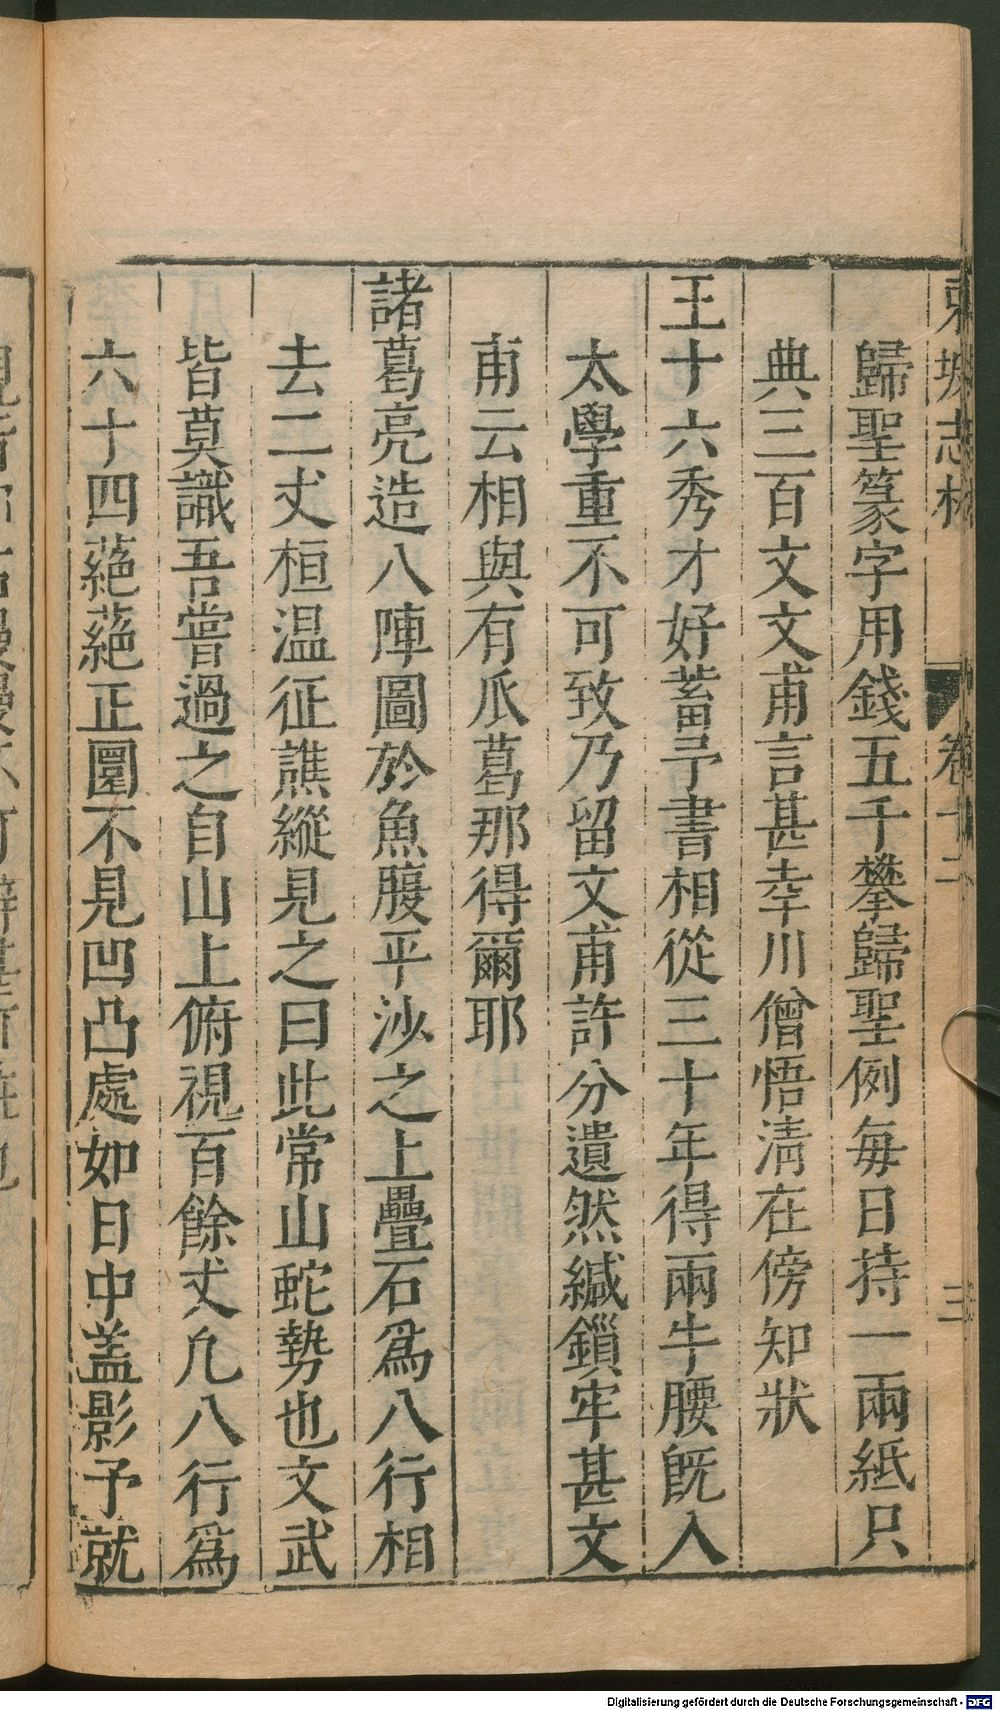 東坡志林 卷十二 三
歸聖篆字用錢五千攀歸聖例每日持一兩紙只
典三百文文甫言甚幸川僧悟淸在傍知狀
王十六秀才好蓄予書相從三十年得兩牛腰旣入
太學重不可致乃留文甫許分遺然緘鎖牢甚文
甫云相與有瓜葛那得爾耶
諸葛亮造八陣圖於魚腹平沙之上疊石爲八行相
去二丈桓温征譙縱見之曰此常山蛇勢也文武
皆莫識吾嘗過之自山上俯視百餘丈凢八行爲
六十四蕝蕝正圜不見凹凸處如日中盖影予就
Digitalisierung gefördert durch die Deutsche Forschungsgemeinschaft - DFG